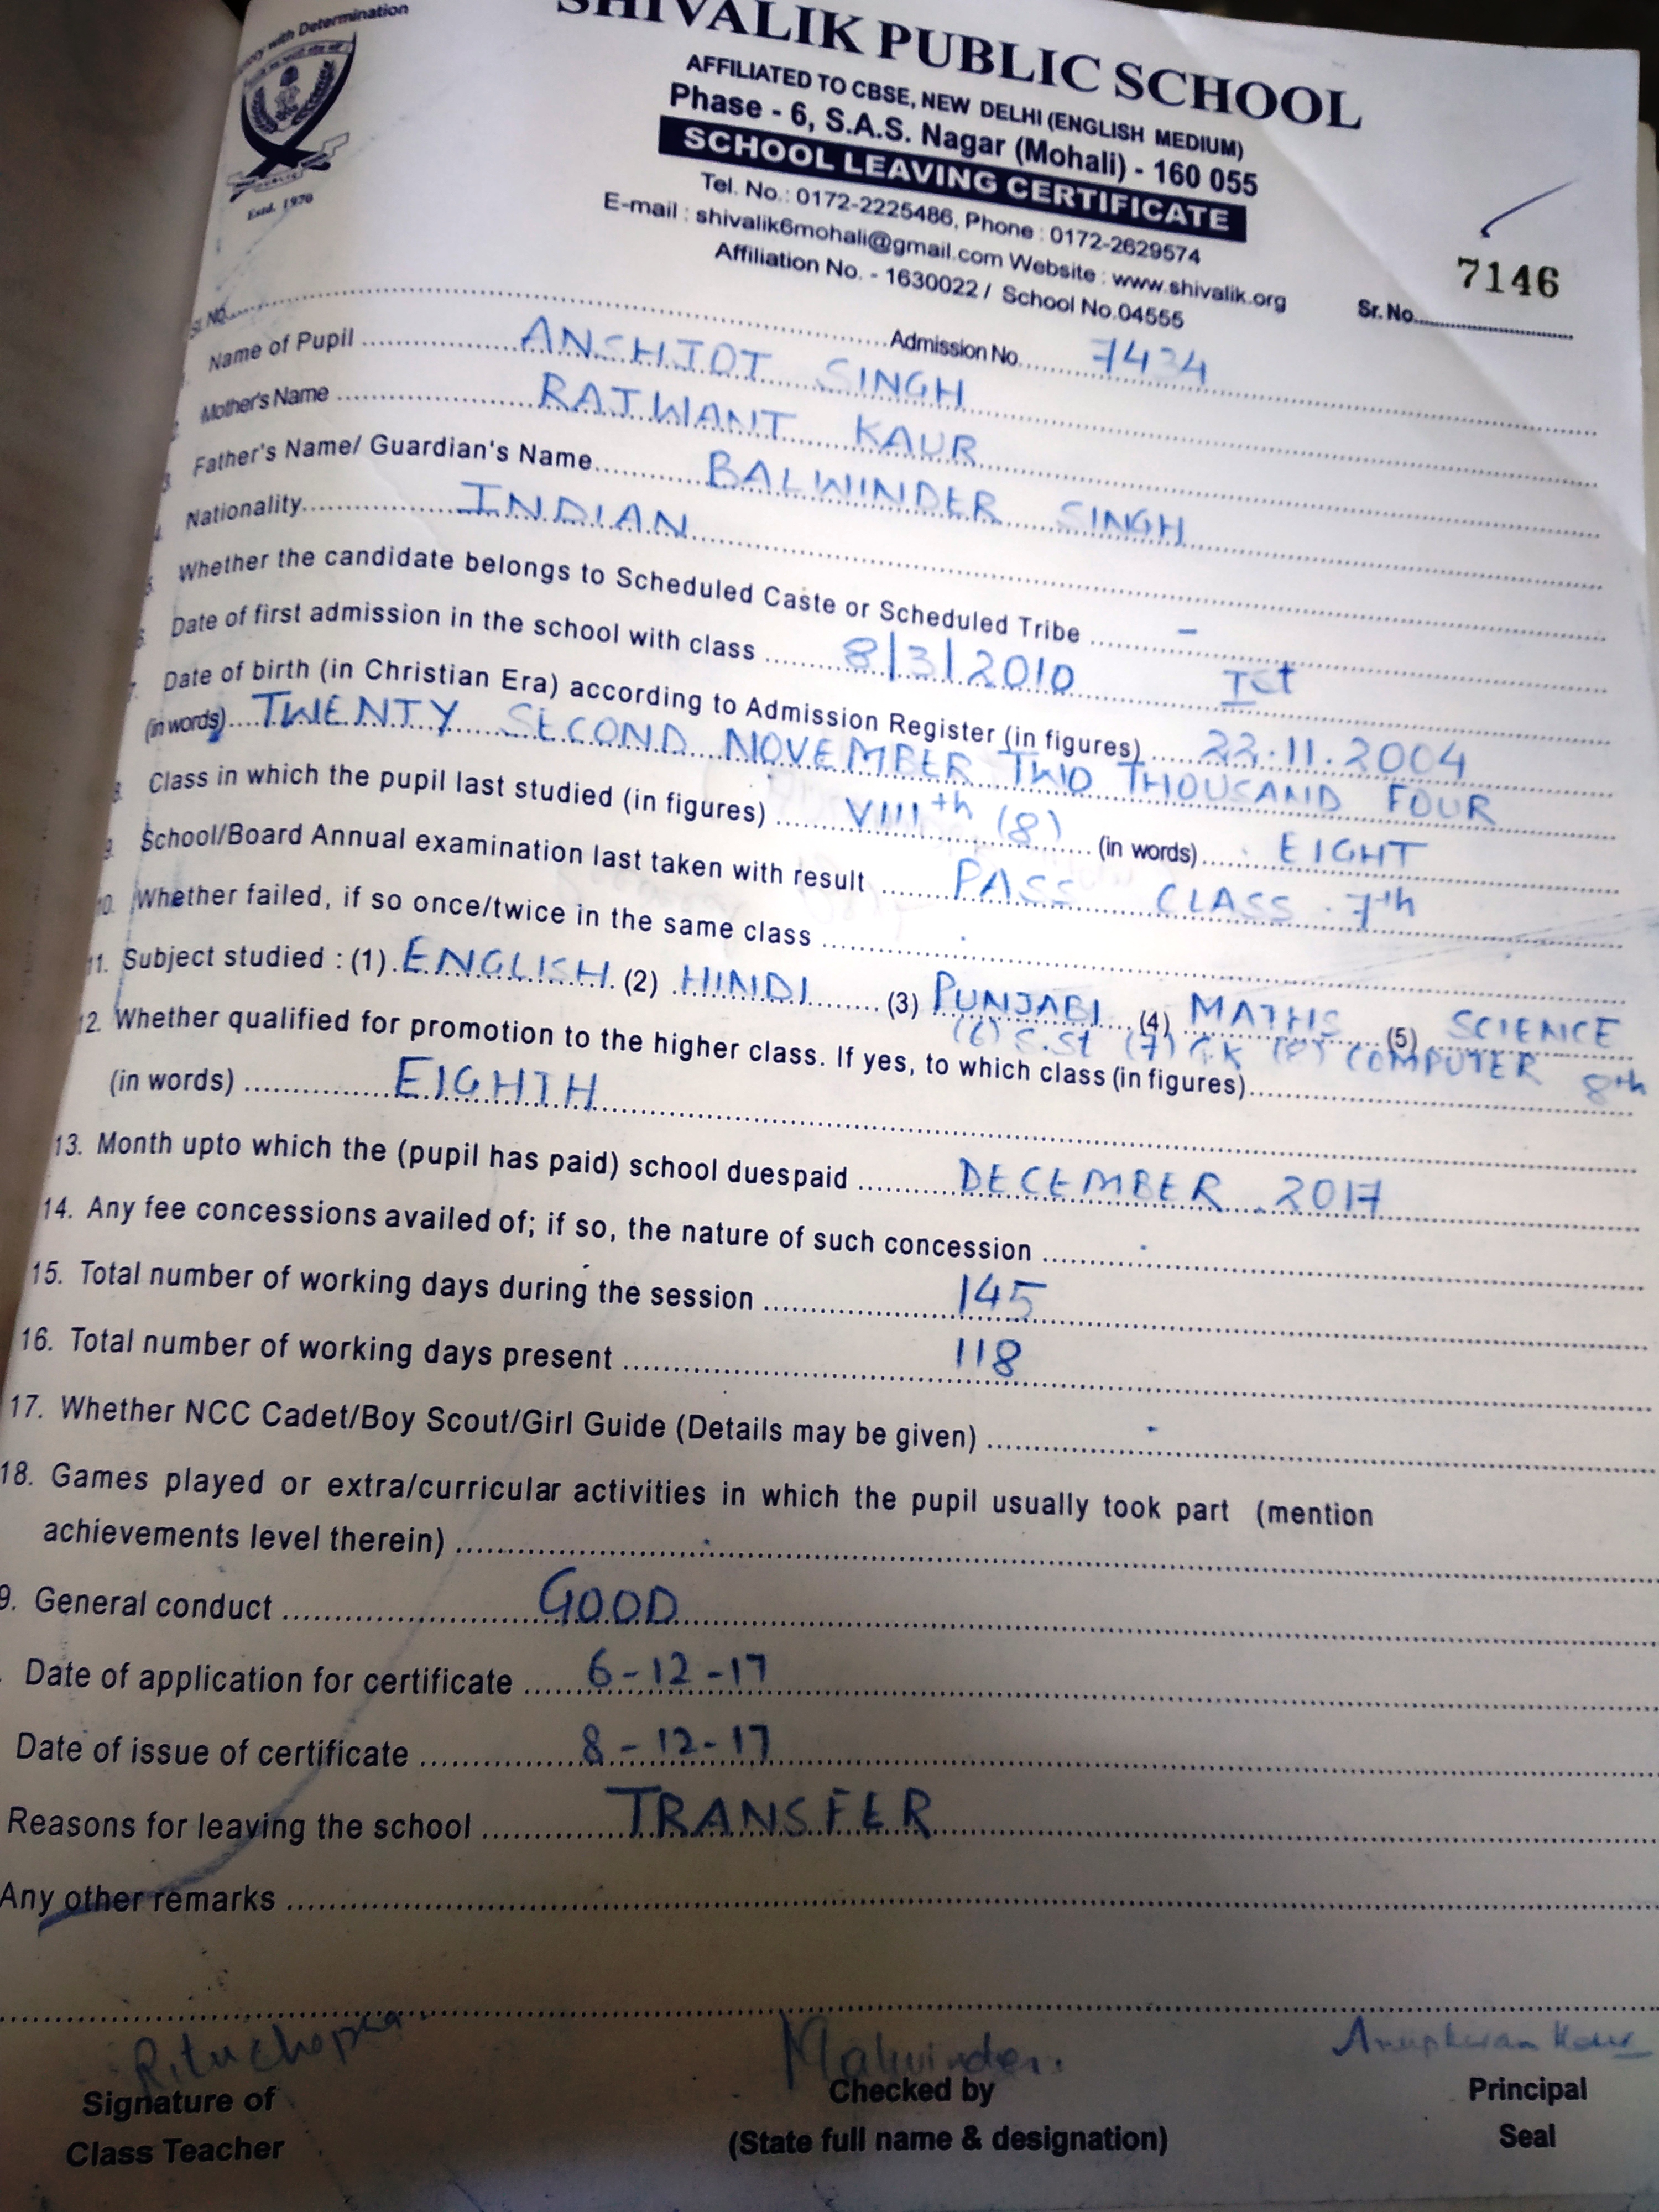 with Determination
Estd. 1970
SHIVALIK PUBLIC SCHOOL
AFFILIATED TO CBSE, NEW DELHI (ENGLISH MEDIUM)
Phase - 6, S.A.S. Nagar (Mohali) - 160 055
SCHOOL LEAVING CERTIFICATE
Tel. No.: 0172-2225486, Phone : 0172-2629574
E-mail : shivalik6mohali@gmail.com Website : www.shivalik.org
Affiliation No. - 1630022 / School No.04555
Sr. No. 7146
Sl. No. Admission No. 7434
Name of Pupil ANSHJOT SINGH
Mother's Name RAJWANT KAUR
3. Father's Name/ Guardian's Name BALWINDER SINGH
4. Nationality INDIAN
5. Whether the candidate belongs to Scheduled Caste or Scheduled Tribe -
6. Date of first admission in the school with class 8/3/2010 Ist
7. Date of birth (in Christian Era) according to Admission Register (in figures) 22.11.2004
(in words) TWENTY SECOND NOVEMBER TWO THOUSAND FOUR
8. Class in which the pupil last studied (in figures) VIIIth (8) (in words) EIGHT
9. School/Board Annual examination last taken with result PASS CLASS 7th
10. Whether failed, if so once/twice in the same class
11. Subject studied : (1) ENGLISH (2) HINDI (3) PUNJABI (4) MATHS (5) SCIENCE
(6) S.St (7) G.K (8) COMPUTER
12. Whether qualified for promotion to the higher class. If yes, to which class (in figures) 8th
(in words) EIGHTH
13. Month upto which the (pupil has paid) school duespaid DECEMBER 2017
14. Any fee concessions availed of; if so, the nature of such concession
15. Total number of working days during the session 145
16. Total number of working days present 118
17. Whether NCC Cadet/Boy Scout/Girl Guide (Details may be given)
18. Games played or extra/curricular activities in which the pupil usually took part (mention
achievements level therein)
9. General conduct GOOD
Date of application for certificate 6-12-17
Date of issue of certificate 8-12-17
Reasons for leaving the school TRANSFER
Any other remarks
Ritu Chopra Malwinder Anupkiran Kaur
Signature of Checked by Principal
Class Teacher (State full name & designation) Seal